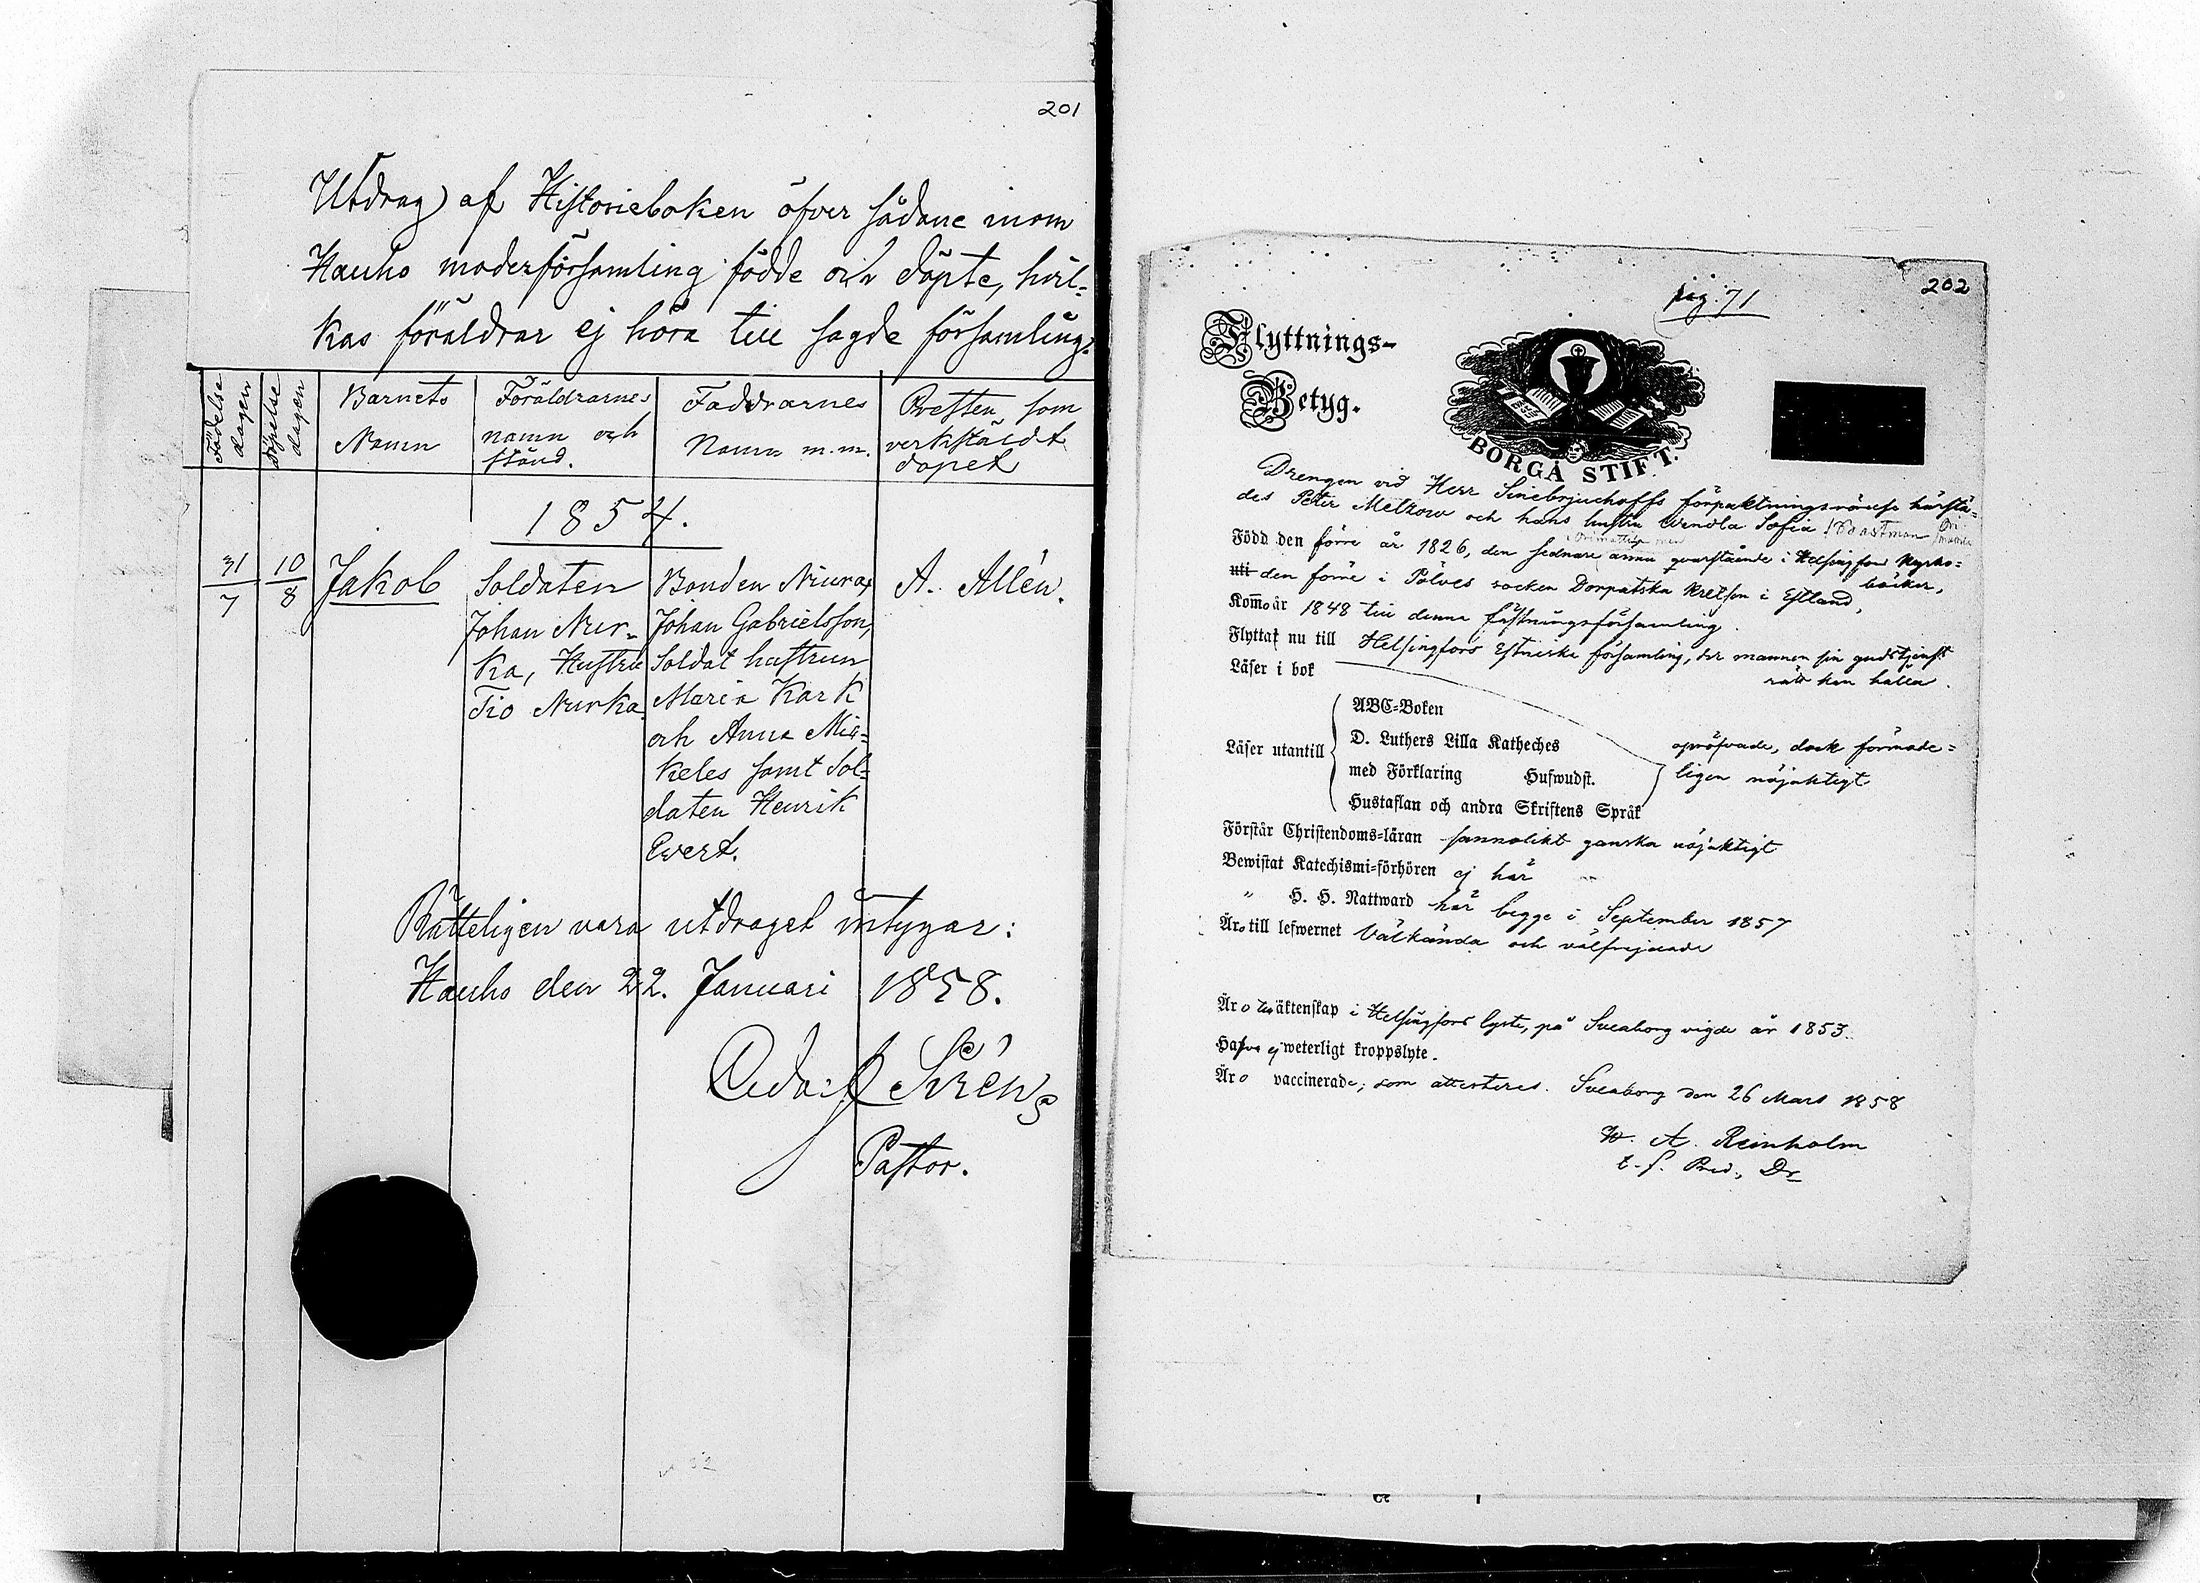 201
Utdrag af Historieboken öfver sådane inom
Hauho moderförsamling födde och döpte, hvil-
kas föräldrar ej höra till sagde församling.
Födelse dagen
Döpelse dagen
Barnets Namn
Föräldrarnes namn och stånd.
Faddrarnes Namn m.m.
Presten som verkstäldt dopet
1854.
31/7
10/8
Jakob
Soldaten
Johan Nur-
ka, Hustru
Tio Nurka
Bonden
Johan Gabrielsson,
Soldat hustrun
Maria Kark
och Anna Mic-
keles samt Sol-
daten Henrik
Evert.
A. Allén.
Rätteligen vara utdraget intygar:
Hauho den 22. Januari 1858.
Sirén
Pastor.
202
pag. 71
Flyttnings-
Betyg.
BORGÅ STIFT.
Drengen vid Herr Sinebrjuchoffs förpaktningsrörelse härstä-
des Peter Melzow och hans hustru Wendla Sofia
Född den förre år 1826, den sednare ännu qvarstående i Helsingfors Kyrko-
böcker,
uti den förre i Pölves socken Dorpatska kretsen i Estland,
Kommo år 1848 till denna fästningsförsamling.
Flytta nu till Helsingfors Estniska församling, der mannen sin gudstjenst
rätt kan hålla.
Läser i bok
Läser utantill
ABC-Boken
D. Luthers Lilla Katheches
med Förklaring Hufwudst.
Hustaflan och andra Skriftens Språk
opröfvade, dock förmode-
ligen nöjaktigt
Förstår Christendoms-läran sannolikt ganska nöjaktigt
Bewistat Katechismi-förhören ej här
" H. H. Nattward här begge i September 1857
Äro till lefwernet Välkända och välfrejdade
Äro äktenskap i Helsingfors lyste, på Sveaborg vigde år 1853.
Hafva ej weterligt kroppslyte.
Äro vaccinerade; som attesteres. Sveaborg den 26 Mars 1858
W. A. Reinholm
t. f. Pred., Dr